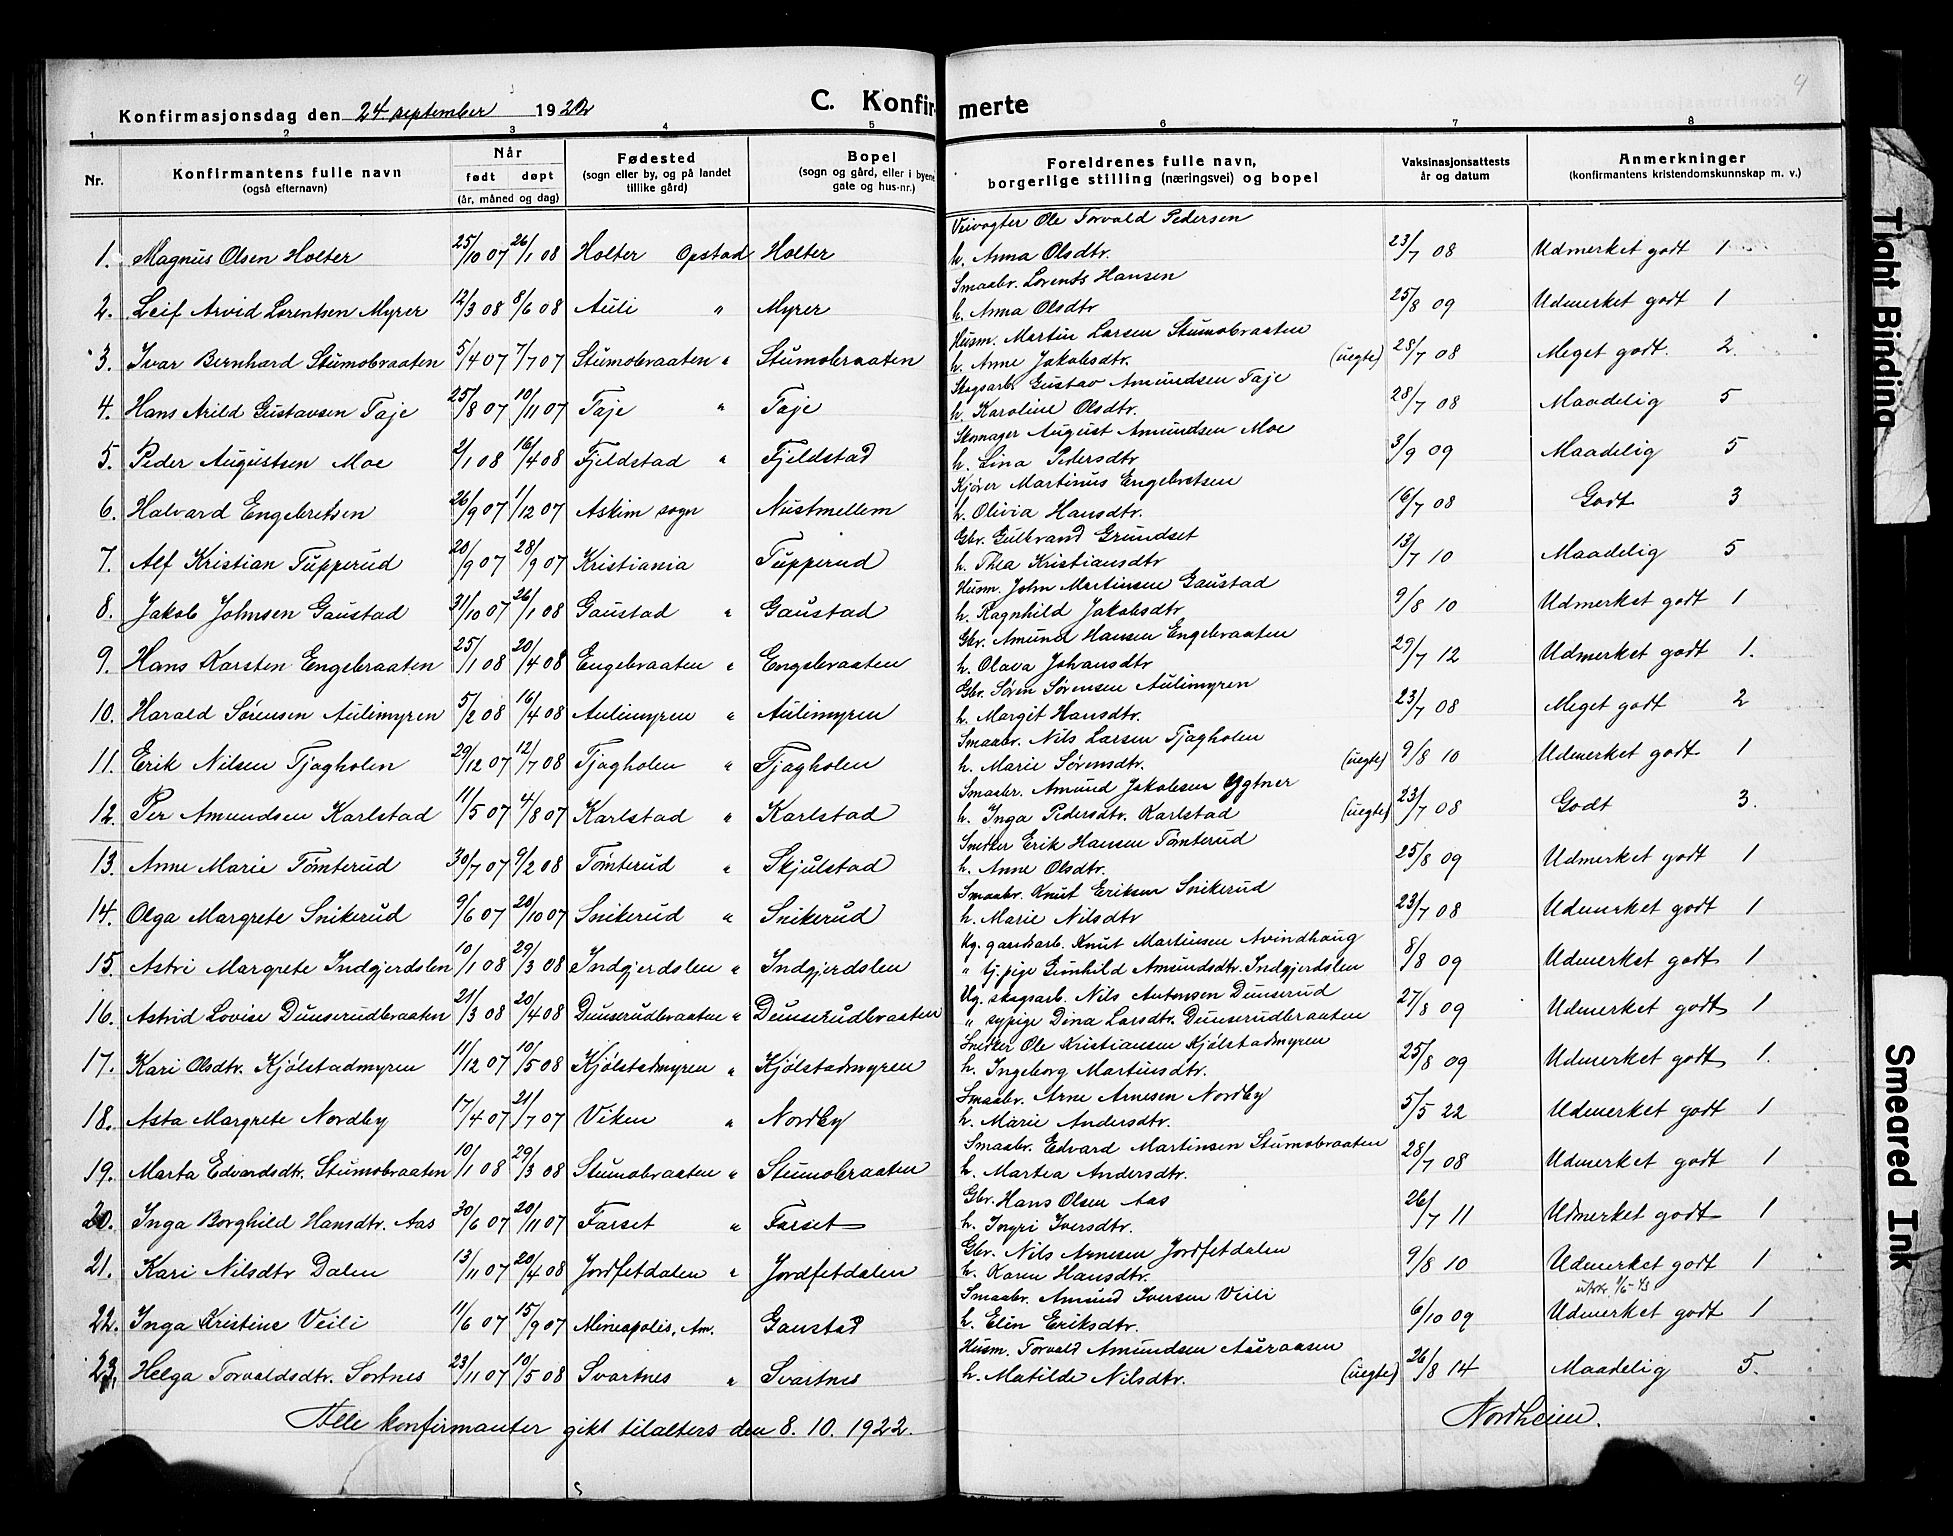 C. Konfirmerte
4
Konfirmasjonsdag den 24. september 1922
1 2 3 4 5 6 7 8
Nr. Konfirmantens fulle navn (også efternavn) Når født døpt (år, måned og dag) Fødested (sogn eller by, og på landet tillike gård) Bopel (sogn og gård, eller i byene gate og hus-nr.) Foreldrenes fulle navn, borgerlige stilling (næringsvei) og bopel Vaksinasjonsattests år og datum Anmerkninger (konfirmantens kristendomskunnskap m. v.)
Veivogter Ole Torvald Pedersen
1. Magnus Olsen Holter 25/10 07 26/1 08 Holter Opstad Holter h. Anna Olsdtr. 23/7 08 Udmerket godt 1
Smaabr. Lorents Hansen
2. Leif Arvid Lorentsen Myrer 12/3 08 8/6 08 Auli " Myrer h. Anna Olsdtr 25/8 09 Udmerket godt 1
Husm. Martin Larsen Stumobraaten
3. Ivar Bernhard Stumobraaten 5/4 07 7/7 07 Stumobraaten " Stumobraaten h. Anne Jakobsdtr. (uegte) 28/7 08 Meget godt. 2
Skogsarb. Gustav Amundsen Taje
4. Hans Arild Gustavsen Taje 25/8 07 10/11 07 Taje " Taje h. Karoline Olsdtr. 28/7 08 Maadelig 5
Skomager August Amundsen Moe
5. Peder Augustsen Moe 2/1 08 16/4 08 Fjeldstad " Fjeldstad h. Lina Pedersdtr 3/9 09 Maadelig 5
Kjører Martinus Engebretsen
6. Halvard Engebretsen 26/9 07 1/12 07 Askim sogn Nustmellem h. Olivia Hansdtr. 16/7 08 Godt 3
Gbr. Gulbrand Grundset
7. Alf Kristian Tupperud 20/9 07 28/9 07 Kristiania Tupperud h. Thea Kristiansdtr 13/7 10 Maadelig 5
Husm. John Martinsen Gaustad
8. Jakob Johnsen Gaustad 31/10 07 26/1 08 Gaustad " Gaustad h. Ragnhild Jakobsdtr 9/8 10 Udmerket godt 1
Gbr. Amund Hansen Engebraaten
9. Hans Karsten Engebraaten 25/1 08 20/4 08 Engebraaten " Engebraaten h. Olava Johansdtr 29/7 12 Udmerket godt 1.
Gbr. Søren Sørensen Aulimyren
10. Harald Sørensen Aulimyren 5/2 08 16/4 08 Aulimyren " Aulimyren h. Margit Hansdtr. 23/7 08 Meget godt 2
Smaabr. Nils Larsen Tjagholen
11. Erik Nilsen Tjagholen 29/12 07 12/7 08 Tjagholen " Tjagholen h. Marie Sørensdtr. (uegte) 9/8 10 Udmerket godt 1
Smaabr. Amund Jakobsen Ygtner
12. Per Amundsen Karlstad 11/5 07 4/8 07 Karlstad " Karlstad h. Inga Pedersdtr. Karlstad (uegte) 23/7 08 Godt 3.
Snekker Erik Hansen Tømterud
13. Anne Marie Tømterud 30/7 07 9/2 08 Tømterud " Skjulstad h. Anne Olsdtr. 25/8 09 Udmerket godt 1
Smaabr. Knut Eriksen Snikerud
14. Olga Margrete Snikerud 9/6 07 20/10 07 Snikerud " Snikerud h. Marie Nilsdtr 23/7 08 Udmerket godt 1
Ug. gardsarb. Knut Martinsen Avindhaug
15. Astri Margrete Indgjerdslen 10/1 08 29/3 08 Indgjerdslen " Indgjerdslen " tj.pige Gunhild Amundsdtr. Indgjerdslen 8/8 09 Udmerket godt 1
Ug. skogsarb. Nils Antonsen Dunserud
16. Astrid Lovise Dunserudbraaten 21/3 08 20/4 08 Dunserudbraaten " Dunserudbraaten " sypige Dina Larsdtr. Dunserudbraaten 27/8 09 Udmerket godt 1
Snekker Ole Kristiansen Kjølstadmyren
17. Kari Olsdtr. Kjølstadmyren 11/12 07 10/5 08 Kjølstadmyren " Kjølstadmyren h. Ingeborg Martinsdtr. 25/8 09 Udmerket godt 1.
Smaabr. Arne Arnesen Nordby
18. Asta Margrete Nordby 17/4 07 21/7 07 Viken " Nordby h. Marie Andersdtr. 5/5 22 Udmerket godt 1
Smaabr. Edvard Martinsen Stumobraaten
19. Marta Edvardsdtr. Stumobraaten 10/1 08 29/3 08 Stumobraaten " Stumobraaten h. Martea Andersdtr. 28/7 08 Udmerket godt 1
Gbr. Hans Olsen Aas
20. Inga Borghild Hansdtr. Aas 30/6 07 20/11 07 Farset " Farset h. Ingri Iversdtr. 26/7 11 Udmerket godt 1
Gbr. Nils Arnesen Jordfetdalen
21. Kari Nilsdtr Dalen 13/11 07 20/4 08 Jordfetdalen " Jordfetdalen h. Karen Hansdtr. 9/8 10 Udmerket godt 1
Smaabr. Amund Iversen Veili
22. Inga Kristine Veili 11/6 07 15/9 07 Mineapolis, Am. Gaustad h. Elin Eriksdtr. 6/10 09 Udmerket godt 1
Husm. Torvald Amundsen Aaeraasen
23. Helga Torvaldsdtr. Sortnes 23/11 07 10/5 08 Svartnes " Svartnes h. Matilde Nilsdtr. (uegte) 26/8 14 Maadelig 5.
Alle konfirmanter gikk tilalters den 8. 10. 1922. Nordheim.
Tight Binding
Smeared Ink